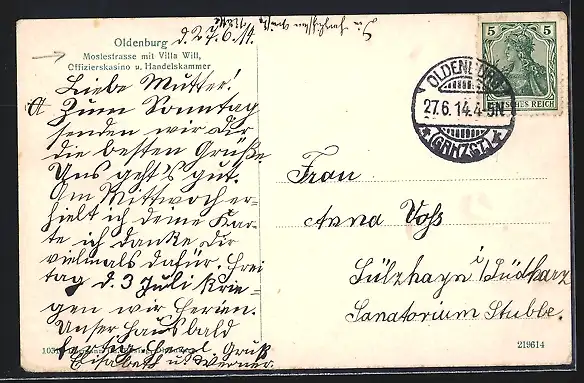 Oldenburg
Moslestrasse mit Villa Will,
Offizierskasino u. Handelskammer
d. 27.6.14.
Liebe Mutter!
Zum Sonntag
senden wir Dir
die besten Grüße.
Uns geht's gut.
Am Mittwoch er-
hielt ich deine Kar-
te ich danke Dir
vielmals dafür. Frei
tag d. 3 Juli krie-
gen wir Ferien.
Unser Haus bald
fertig. Herzl. Gruß
Elisabeth u. Werner.
5
DEUTSCHES REICH
OLDENBURG
27.6.14.4-5N
(GRHZGT.)
Frau
Anna Voß
Sülzhayn i/Südharz
Sanatorium Stubbe.
219614